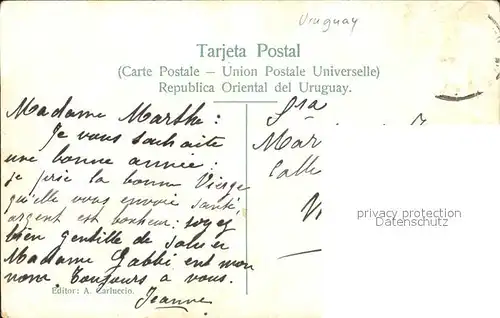 Uruguay
Tarjeta Postal
(Carte Postale – Union Postale Universelle)
Republica Oriental del Uruguay.
Madame Marthe:
Je vous souhaite
une bonne année:
je prie la bonne Vierge
qu'elle vous envoie santé
argent est bonheur: soyez
bien gentille de saluer
Madame Gabbi ent mon
nom. Toujours a vous.
Jeanne
Sra
Mar
Calle
privacy protection
Datenschutz
Editor: A. Carluccio.